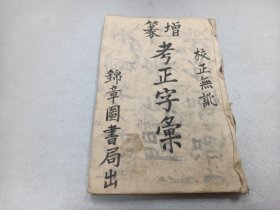 增篆
校正無訛
考正字彙
錦章圖書局出